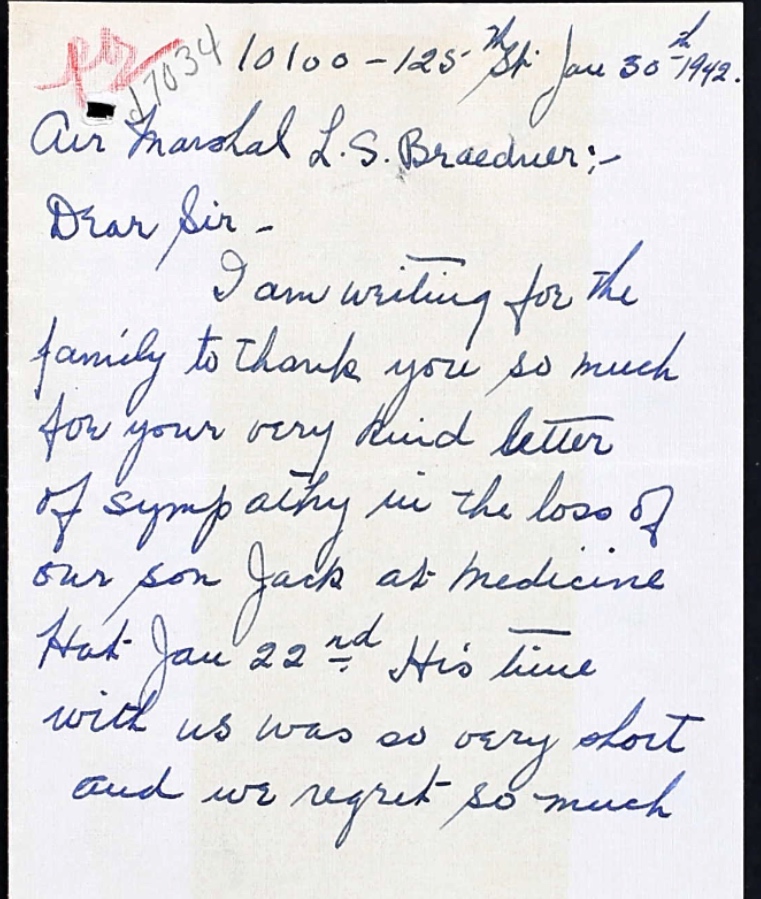 J7034
10100 - 125th St. Jan 30th 1942.
Air Marshal L.S. Braedner:-
Dear Sir -
I am writing for the
family to thank you so much
for your very kind letter
of sympathy in the loss of
our son Jack at Medicine
Hat Jan 22nd His time
with us was so very short
and we regret so much